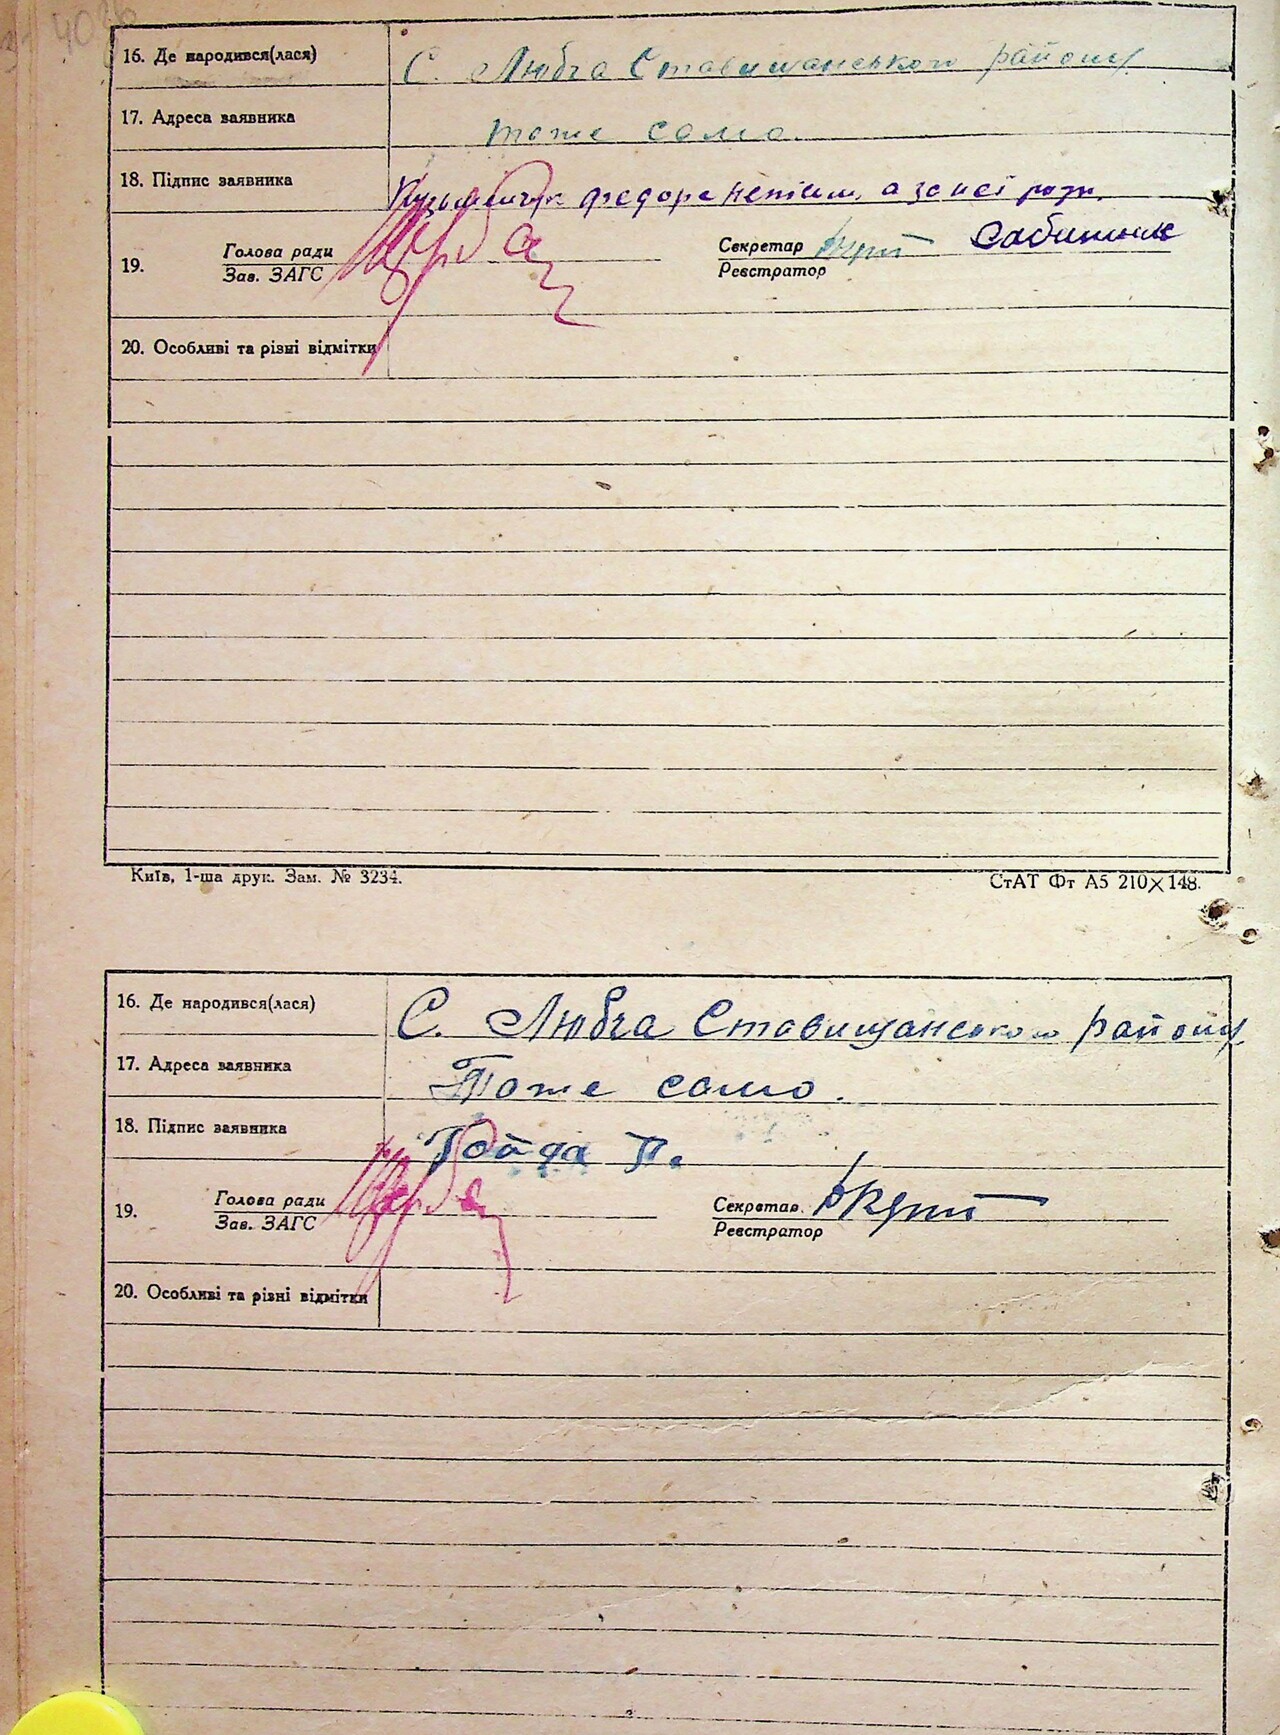 16. Де народився(лася) С. Любча Ставищанського району
17. Адреса заявника тоже само.
18. Підпис заявника Кузьменчук Федора неписьм. а за неї розп.
Голова ради Секретар Сабашник
19. Зав. ЗАГС Реєстратор
20. Особливі та різні відмітки
Київ, 1-ша друк. Зам. № 3234. СтАТ Фт А5 210×148.
16. Де народився(лася) С. Любча Ставищанського району
17. Адреса заявника Тоже само.
18. Підпис заявника Гойда П.
Голова ради Секретар
19. Зав. ЗАГС Реєстратор
20. Особливі та різні відмітки